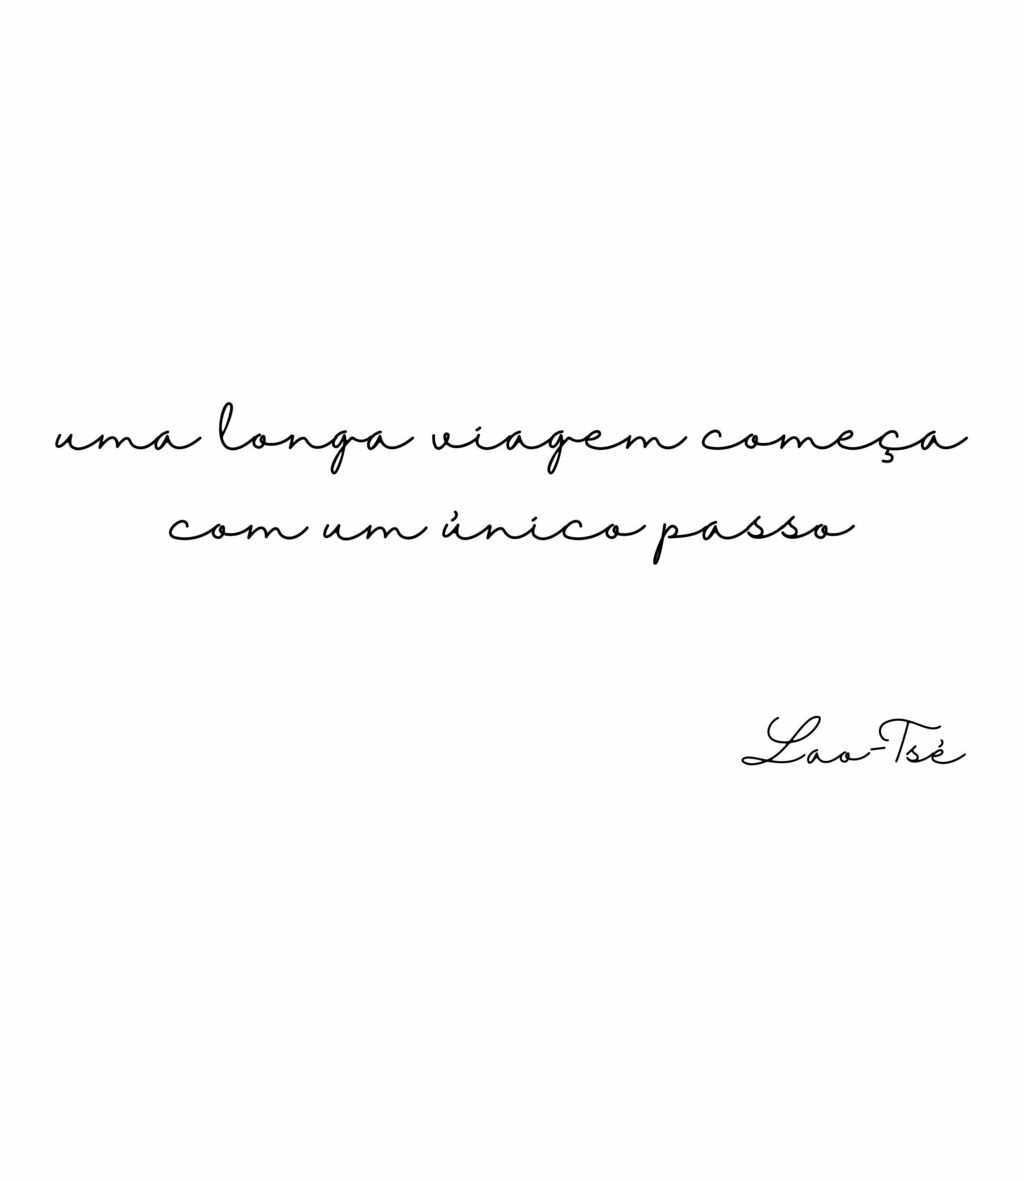 uma longa viagem começa
com um único passo
Lao-Tsé